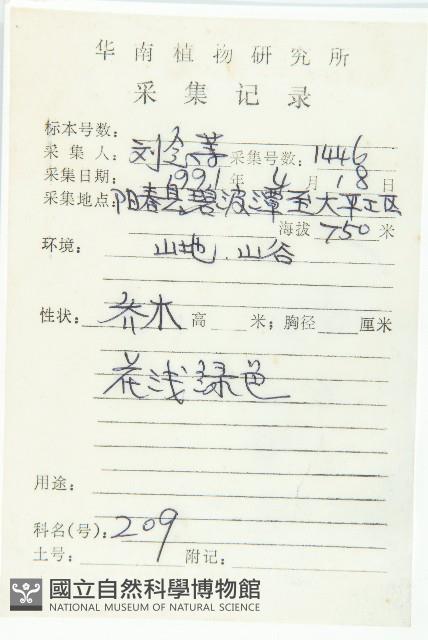 华南植物研究所
采集记录
标本号数：
采集人：刘念等 采集号数：1446
采集日期：1991年4月18日
采集地点：阳春县碧波潭至大平工区
海拔750米
环境：山地.山谷
性状：乔木 高 米；胸径 厘米
花浅绿色
用途：
科名(号)：209
土号： 附记：
國立自然科學博物館
NATIONAL MUSEUM OF NATURAL SCIENCE